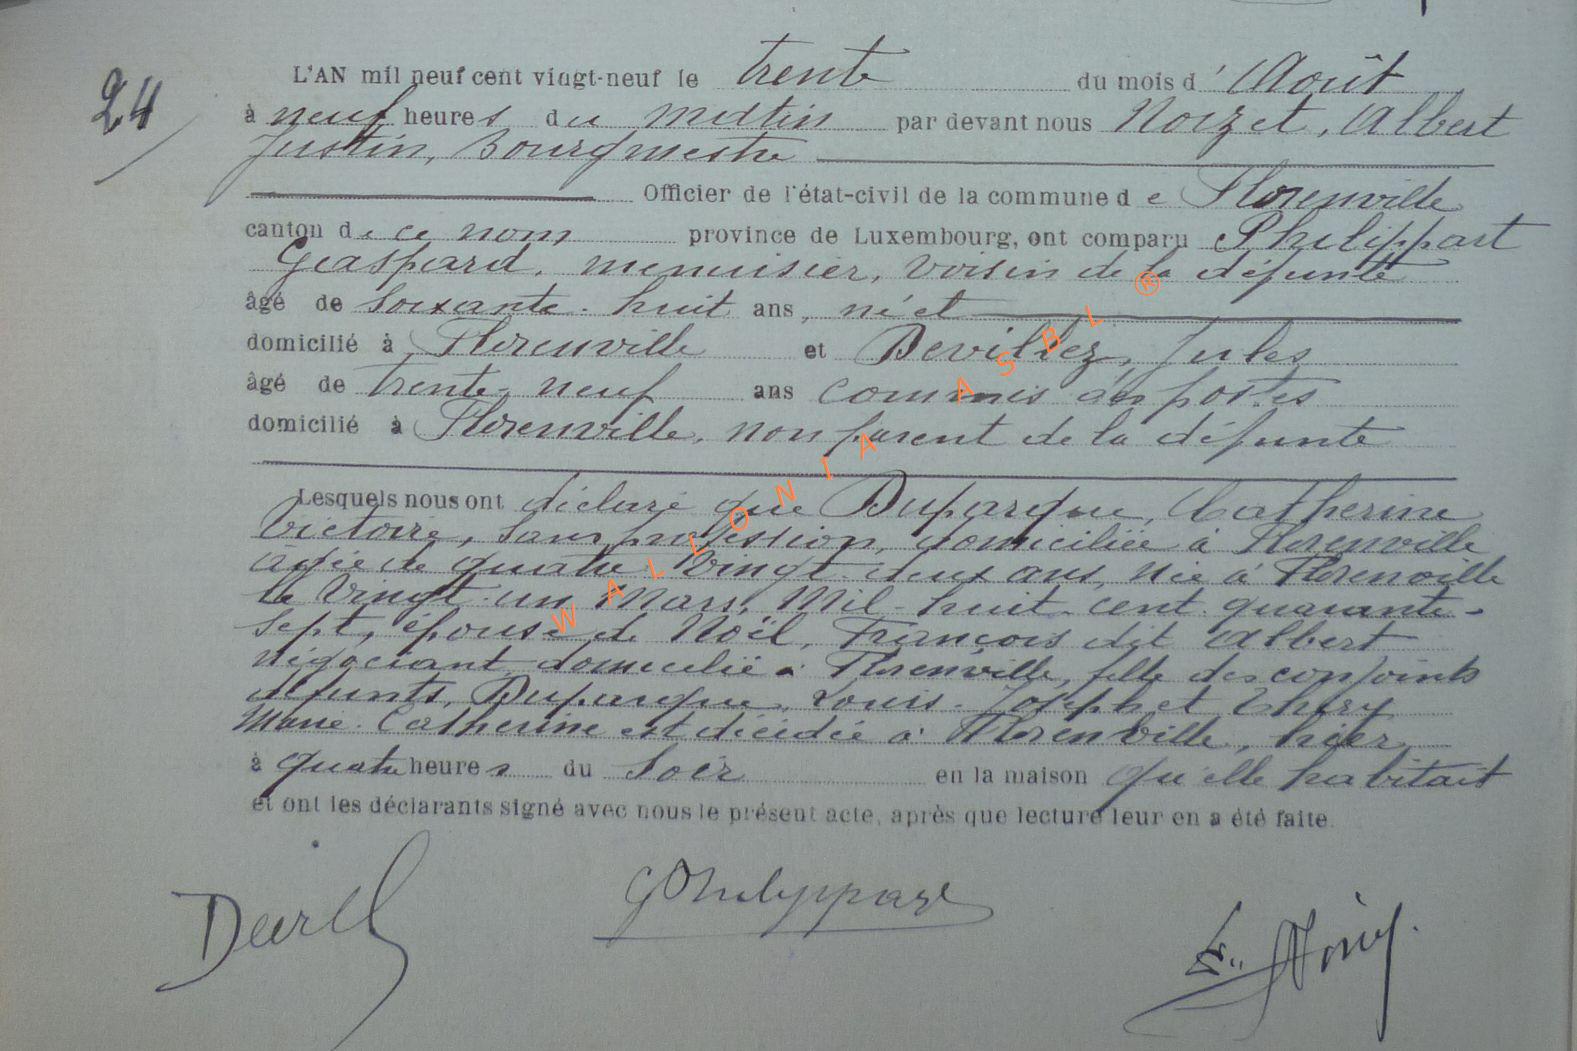 24
L'AN mil neuf cent vingt-neuf le trente du mois d'Août
à neuf heures du matin par devant nous Noizet, Albert
Justin, Bourgmestre
Officier de l'état-civil de la commune de Florenville
canton de ce nom province de Luxembourg, ont comparu Philippart
Gaspard, menuisier, voisin de la défunte
âgé de soixante-huit ans, né et
domicilié à Florenville et Devillez, Jules
âgé de trente-neuf ans commis des postes
domicilié à Florenville, non parent de la défunte
Lesquels nous ont déclaré que Duparque, Catherine
Victoire, sans profession, domiciliée à Florenville
âgée de quatre-vingt-deux ans, née à Florenville
le vingt-un Mars, Mil-huit-cent quarante-
sept, épouse de Noël, François dit Albert
négociant domicilié à Florenville, fille des conjoints
défunts, Duparque, Louis-Joseph et Thiry
Marie-Catherine est décédée à Florenville, hier,
à quatre heures du soir en la maison qu'elle habitait
et ont les déclarants signé avec nous le présent acte, après que lecture leur en a été faite.
GPhilippart
WALLONIA ASBL ®